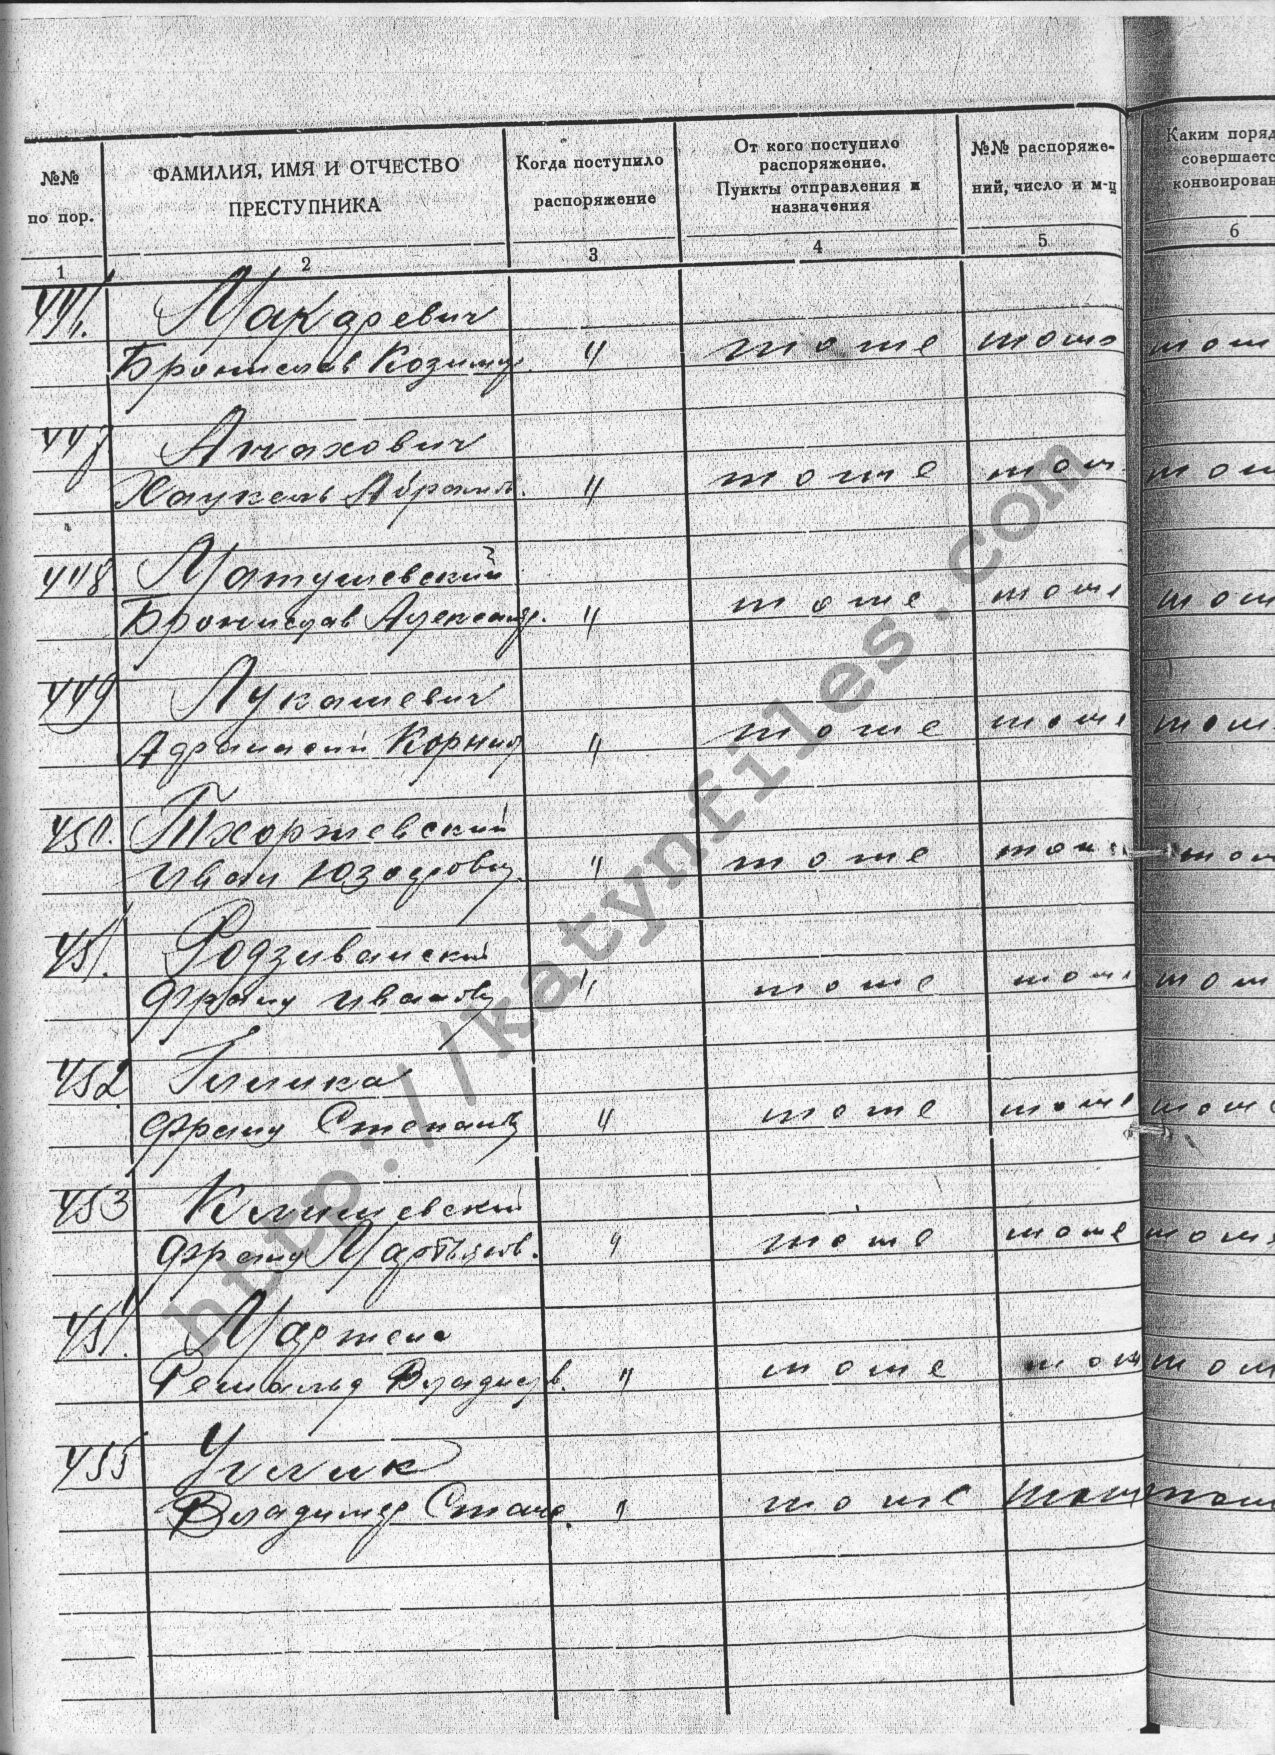 №№
по пор.
ФАМИЛИЯ, ИМЯ И ОТЧЕСТВО
ПРЕСТУПНИКА
Когда поступило
распоряжение
От кого поступило
распоряжение.
Пункты отправления и
назначения
№№ распоряже-
ний, число и м-ц
Каким поряд
совершаетс
конвоирован
1 2 3 4 5 6
446. Макаревич
Бронислав Козимир. " тоже тоже тож
447
" тоже тож тож
448 Матушевский
Бронислав Александр. " тоже тоже тож
449 Лукашевич
" тоже тоже тож
450. Тхоржевский
Иван Юзефович. " тоже тоже тож
451. Родзиванский
Франц Иванов " тоже тоже тож
452
Франц Степанов " тоже тоже тоже
453 Климевский
Франц " тоже тоже тоже
454.
Владислав. " тоже тож тож
455
Владимир Стани. " тоже тож тож
http://katynfiles.com